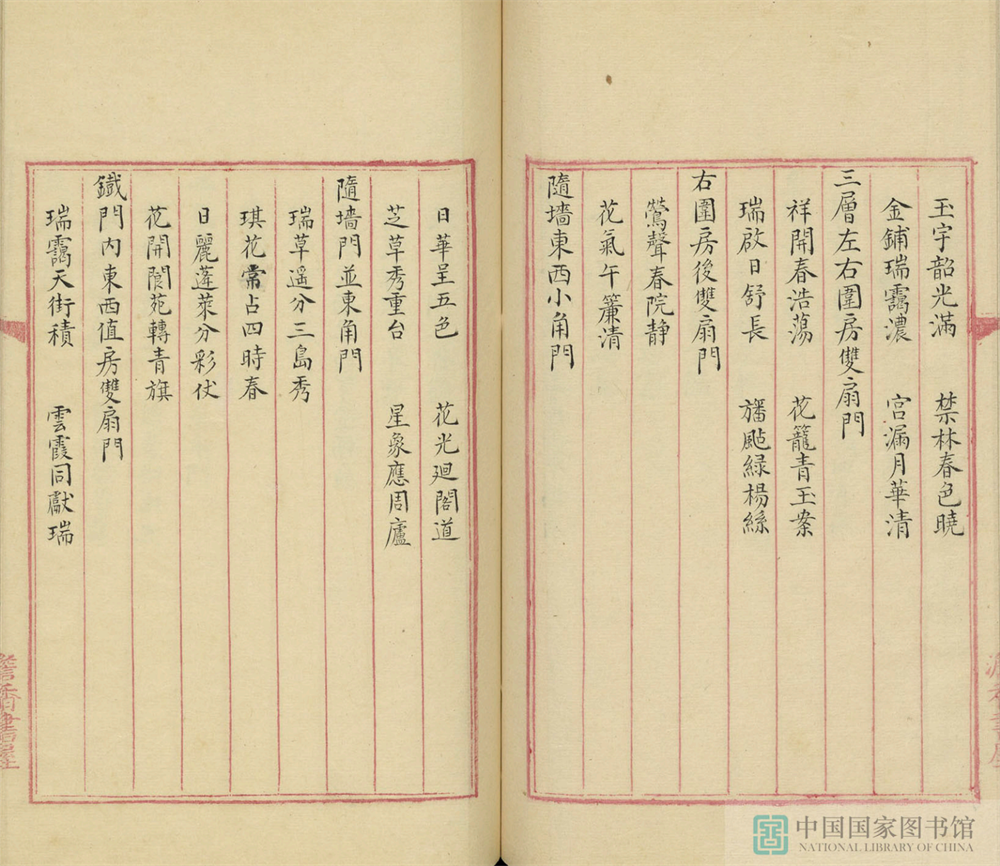 玉宇韶光滿　禁林春色曉
金鋪瑞靄濃　宮漏月華清
三層左右圍房雙扇門
祥開春浩蕩　花籠青玉案
瑞啟日舒長　旛颭綠楊絲
右圍房後雙扇門
鶯聲春院静
花氣午簾清
隨墻東西小角門
日華呈五色　花光廻閣道
芝草秀重台　星象應周廬
隨墻門並東角門
瑞草遥分三島秀
琪花常占四時春
日麗蓬萊分彩仗
花開閬苑轉青旗
鐵門內東西值房雙扇門
瑞靄天街積　雲霞同獻瑞
書屋
中国国家图书馆
NATIONAL LIBRARY OF CHINA